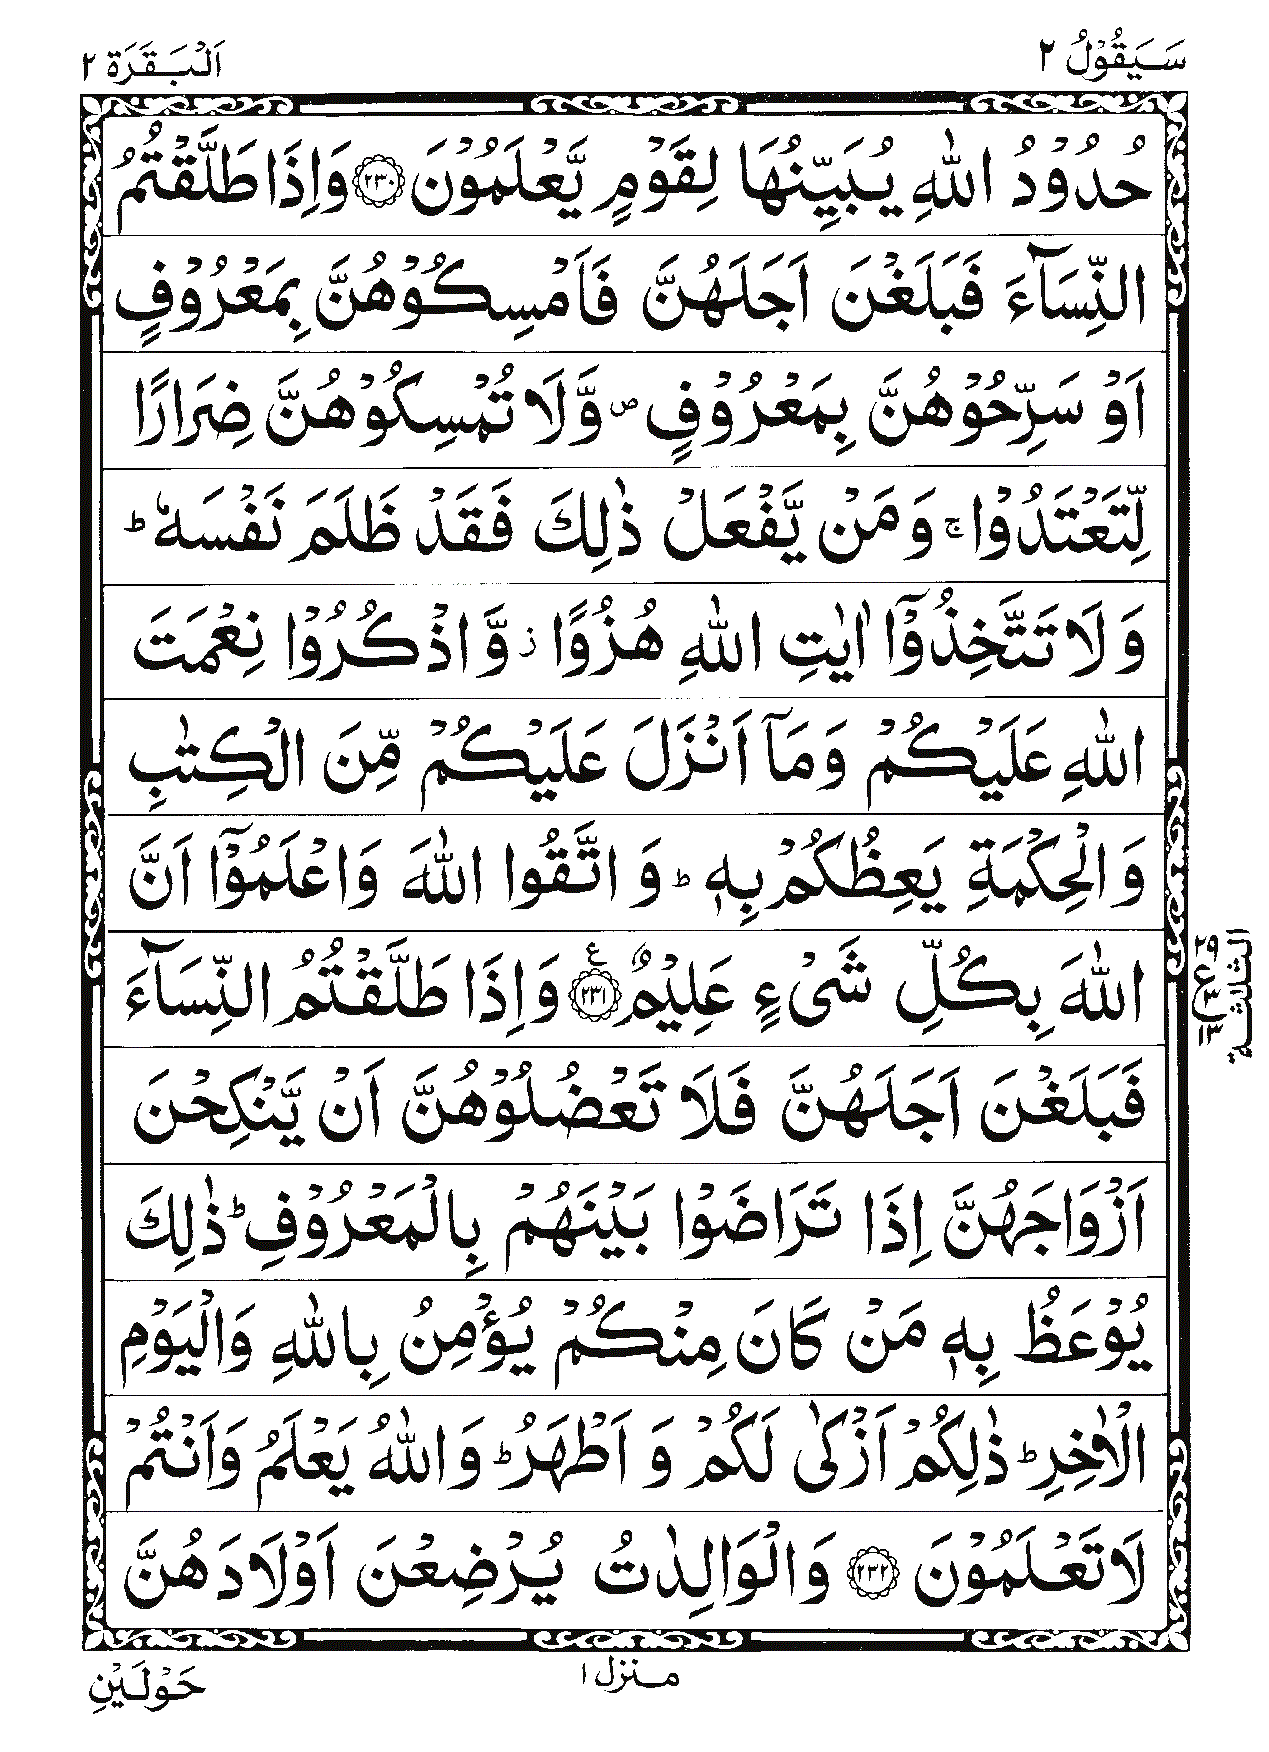 سَيَقُوْلُ ٢
اَلْبَقَرَة ٢
حُدُوْدُ اللّٰهِ يُبَيِّنُهَا لِقَوْمٍ يَّعْلَمُوْنَ ﴿٢٣٠﴾ وَاِذَا طَلَّقْتُمُ
النِّسَآءَ فَبَلَغْنَ اَجَلَهُنَّ فَاَمْسِكُوْهُنَّ بِمَعْرُوْفٍ
اَوْ سَرِّحُوْهُنَّ بِمَعْرُوْفٍ ۪ وَّلَا تُمْسِكُوْهُنَّ ضِرَارًا
لِّتَعْتَدُوْا ۚ وَمَنْ يَّفْعَلْ ذٰلِكَ فَقَدْ ظَلَمَ نَفْسَهٗ ؕ
وَلَا تَتَّخِذُوْٓا اٰيٰتِ اللّٰهِ هُزُوًا ؗ وَّاذْكُرُوْا نِعْمَتَ
اللّٰهِ عَلَيْكُمْ وَمَآ اَنْزَلَ عَلَيْكُمْ مِّنَ الْكِتٰبِ
وَالْحِكْمَةِ يَعِظُكُمْ بِهٖ ؕ وَاتَّقُوا اللّٰهَ وَاعْلَمُوْٓا اَنَّ
اللّٰهَ بِكُلِّ شَىْءٍ عَلِيْمٌ ﴿٢٣١﴾ ع وَاِذَا طَلَّقْتُمُ النِّسَآءَ
فَبَلَغْنَ اَجَلَهُنَّ فَلَا تَعْضُلُوْهُنَّ اَنْ يَّنْكِحْنَ
اَزْوَاجَهُنَّ اِذَا تَرَاضَوْا بَيْنَهُمْ بِالْمَعْرُوْفِ ؕ ذٰلِكَ
يُوْعَظُ بِهٖ مَنْ كَانَ مِنْكُمْ يُؤْمِنُ بِاللّٰهِ وَالْيَوْمِ
الْاٰخِرِ ؕ ذٰلِكُمْ اَزْكٰى لَكُمْ وَاَطْهَرُ ؕ وَاللّٰهُ يَعْلَمُ وَاَنْتُمْ
لَا تَعْلَمُوْنَ ﴿٢٣٢﴾ وَالْوَالِدٰتُ يُرْضِعْنَ اَوْلَادَهُنَّ
٢٩
ع ٣
١٣
الثلاثة
منزل ١
حَوْلَيْنِ